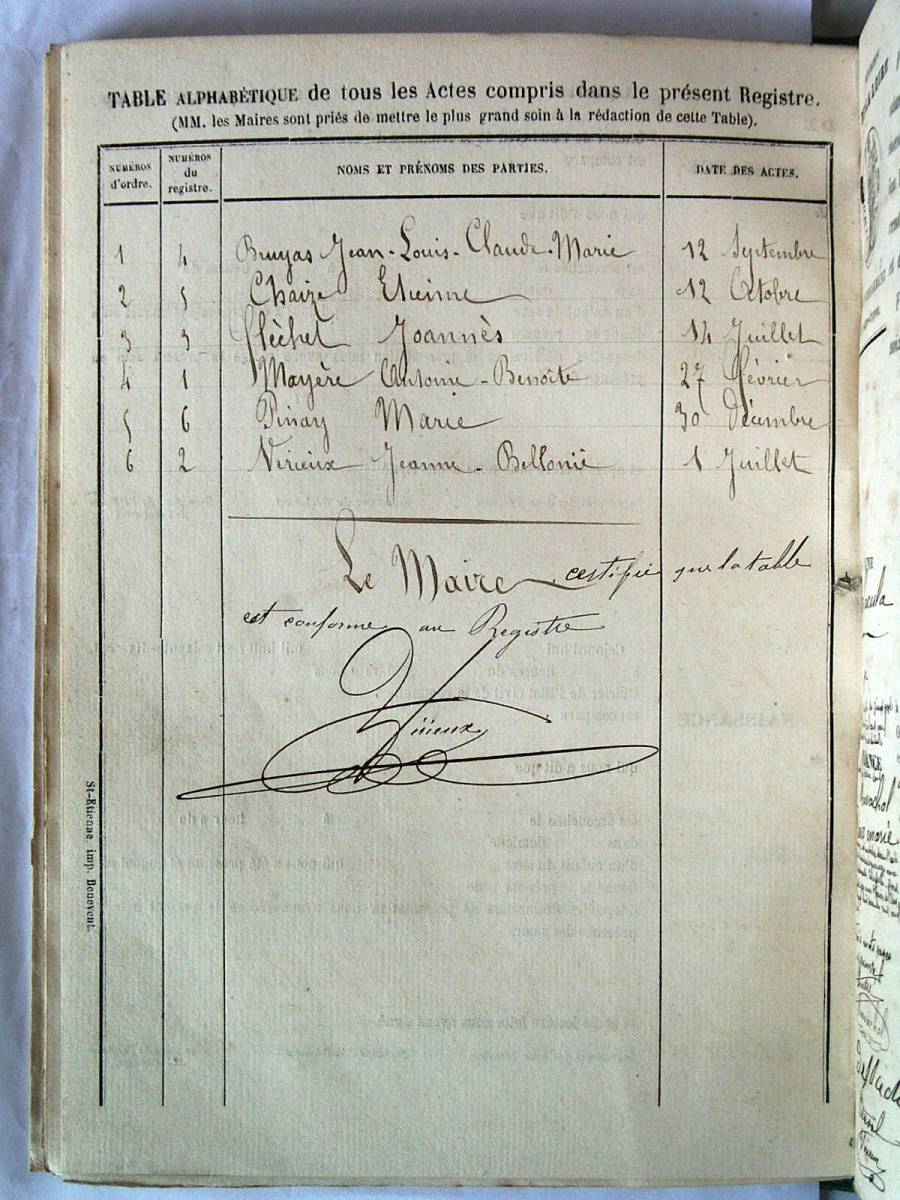 TABLE ALPHABÉTIQUE de tous les Actes compris dans le présent Registre.
(MM. les Maires sont priés de mettre le plus grand soin à la rédaction de cette Table).
NUMÉROS d'ordre. NUMÉROS du registre. NOMS ET PRÉNOMS DES PARTIES. DATE DES ACTES.
1 4 Bruyas Jean-Louis-Claude-Marie 12 Septembre
2 5 Chaize Etienne 12 Octobre
3 3 Fléchet Joannès 14 Juillet
4 1 Mayère Antoine-Benoîte 27 Février
5 6 Pinay Marie 30 Décembre
6 2 Virieux Jeanne-Bellonie 1 Juillet
Le Maire certifie que la table
est conforme au Registre
Virieux
St-Etienne, imp. Benevent.